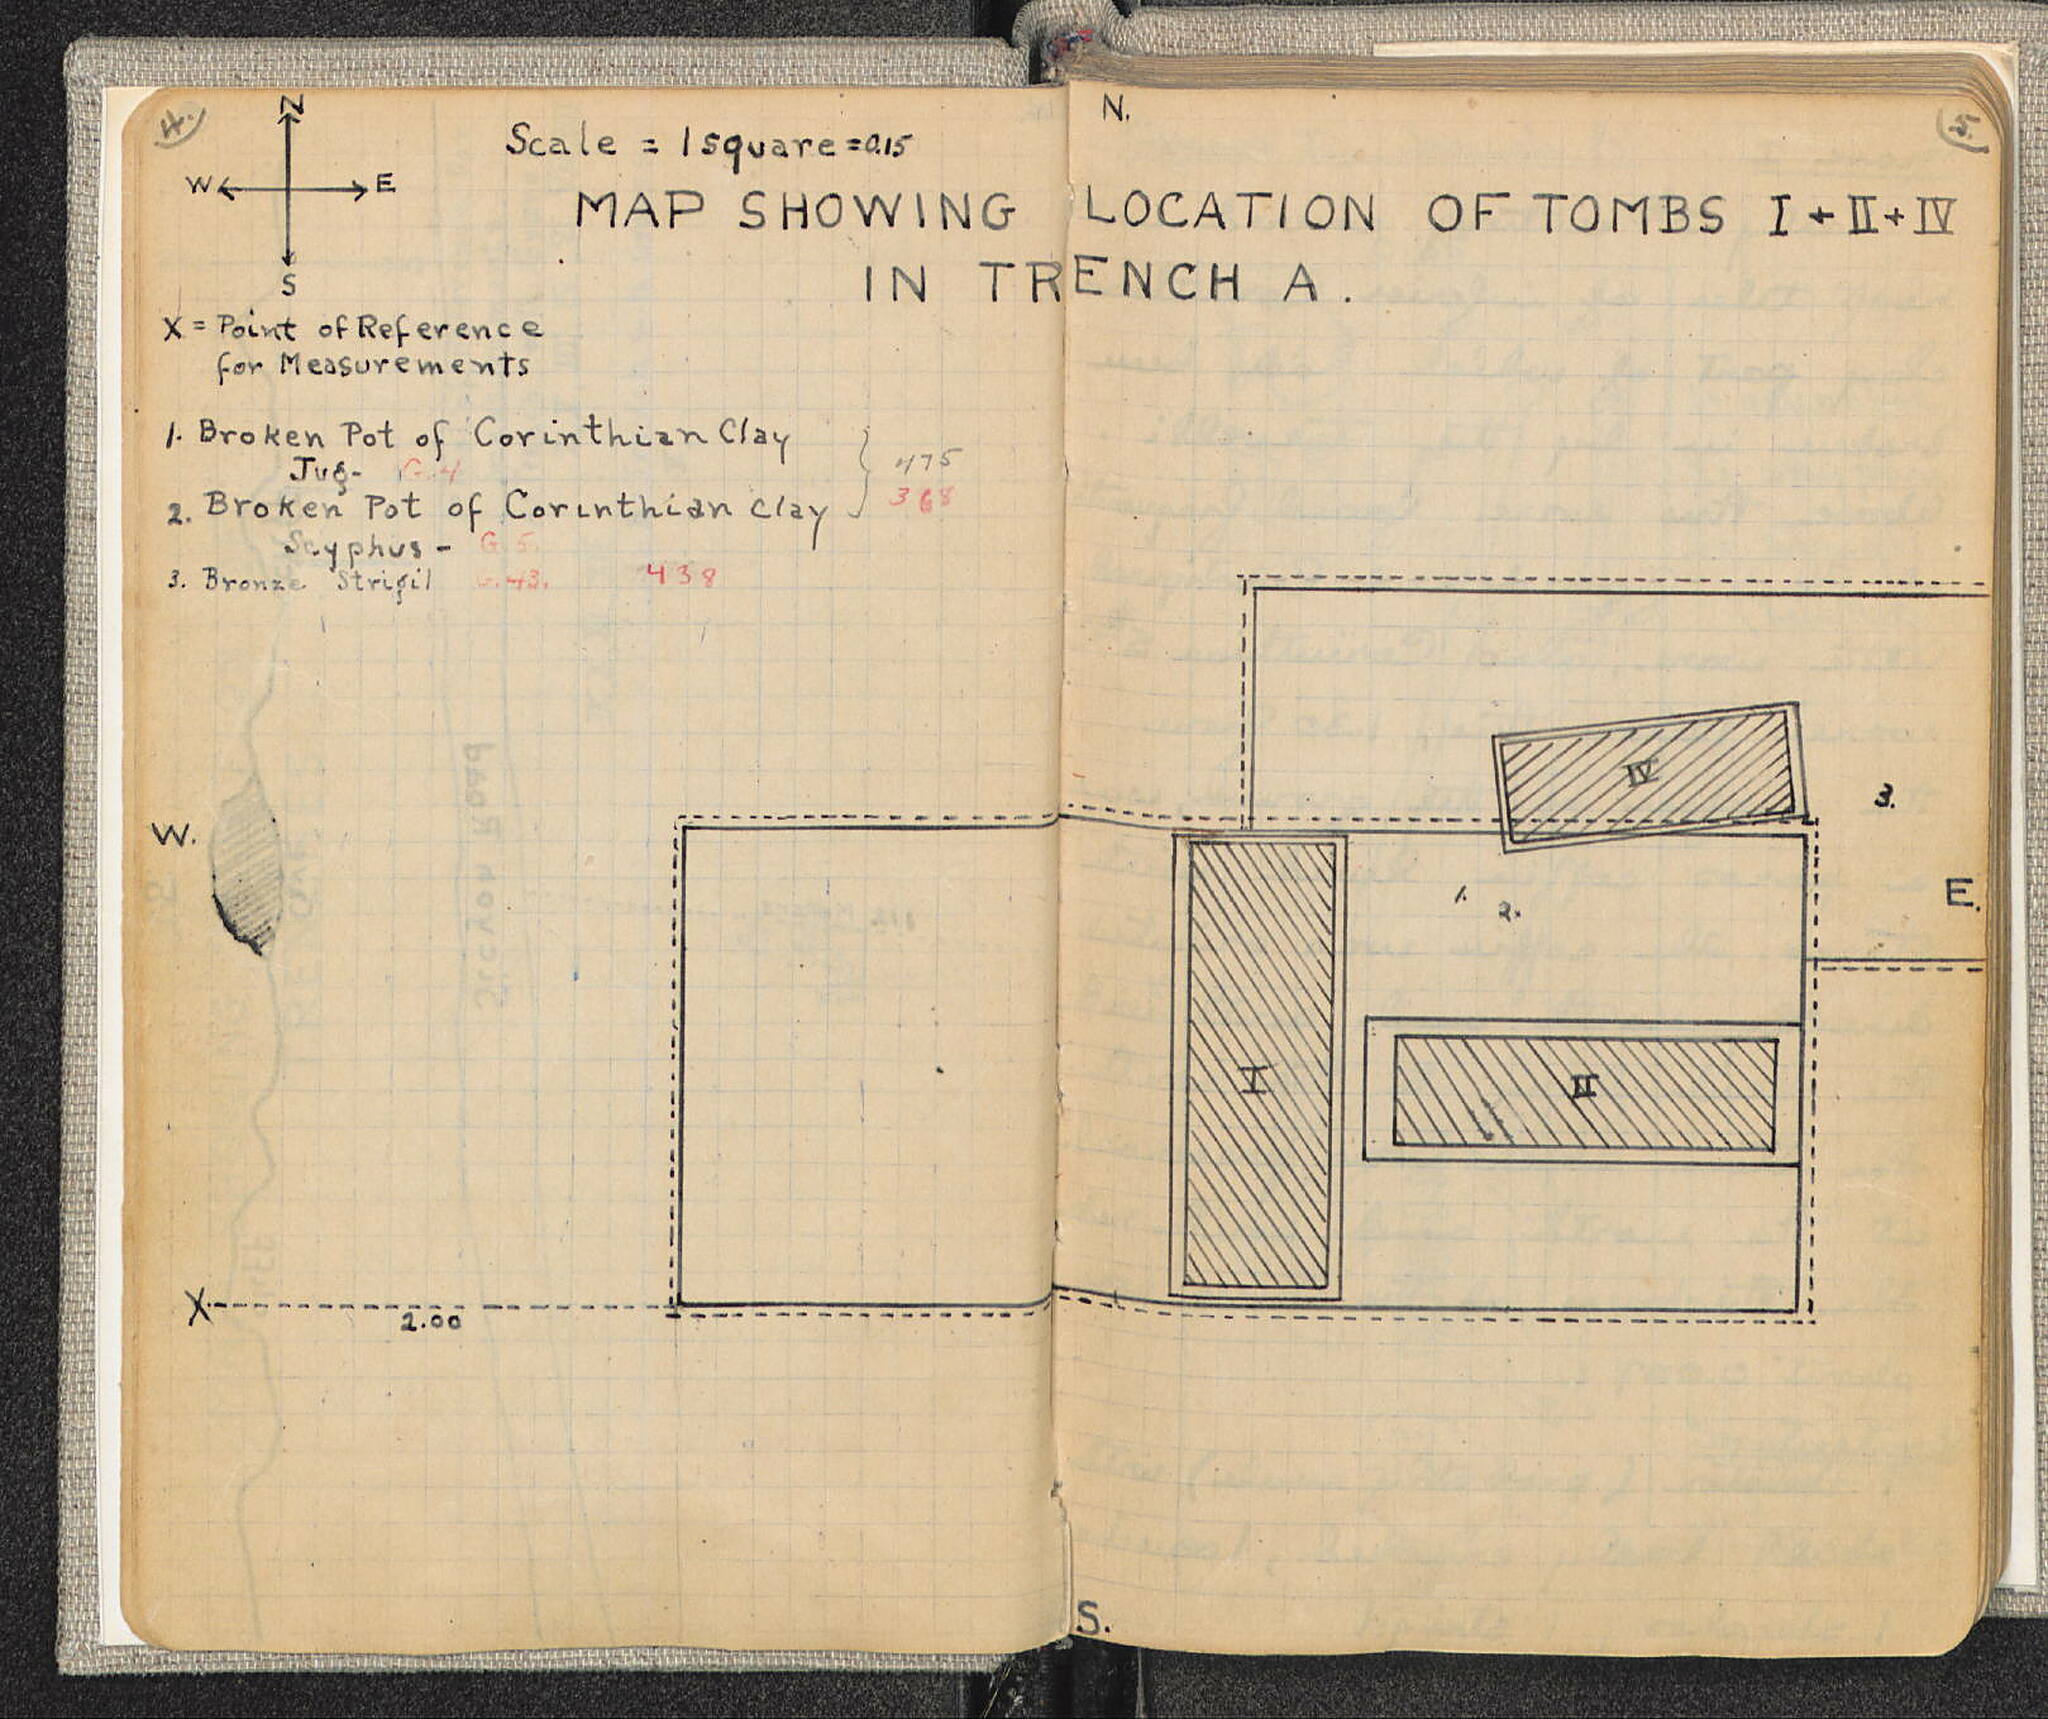 4.
N
W E
S
Scale = 1 square = 0.15
N.
5.
MAP SHOWING LOCATION OF TOMBS I + II + IV
IN TRENCH A.
X = Point of Reference
for Measurements
1. Broken Pot of Corinthian Clay
Jug- G.4
2. Broken Pot of Corinthian Clay
Scyphus - G.5.
475
368
3. Bronze Strigil G.43. 438
IV
3.
W.
1. 2.
E.
I
II
X
2.00
S.